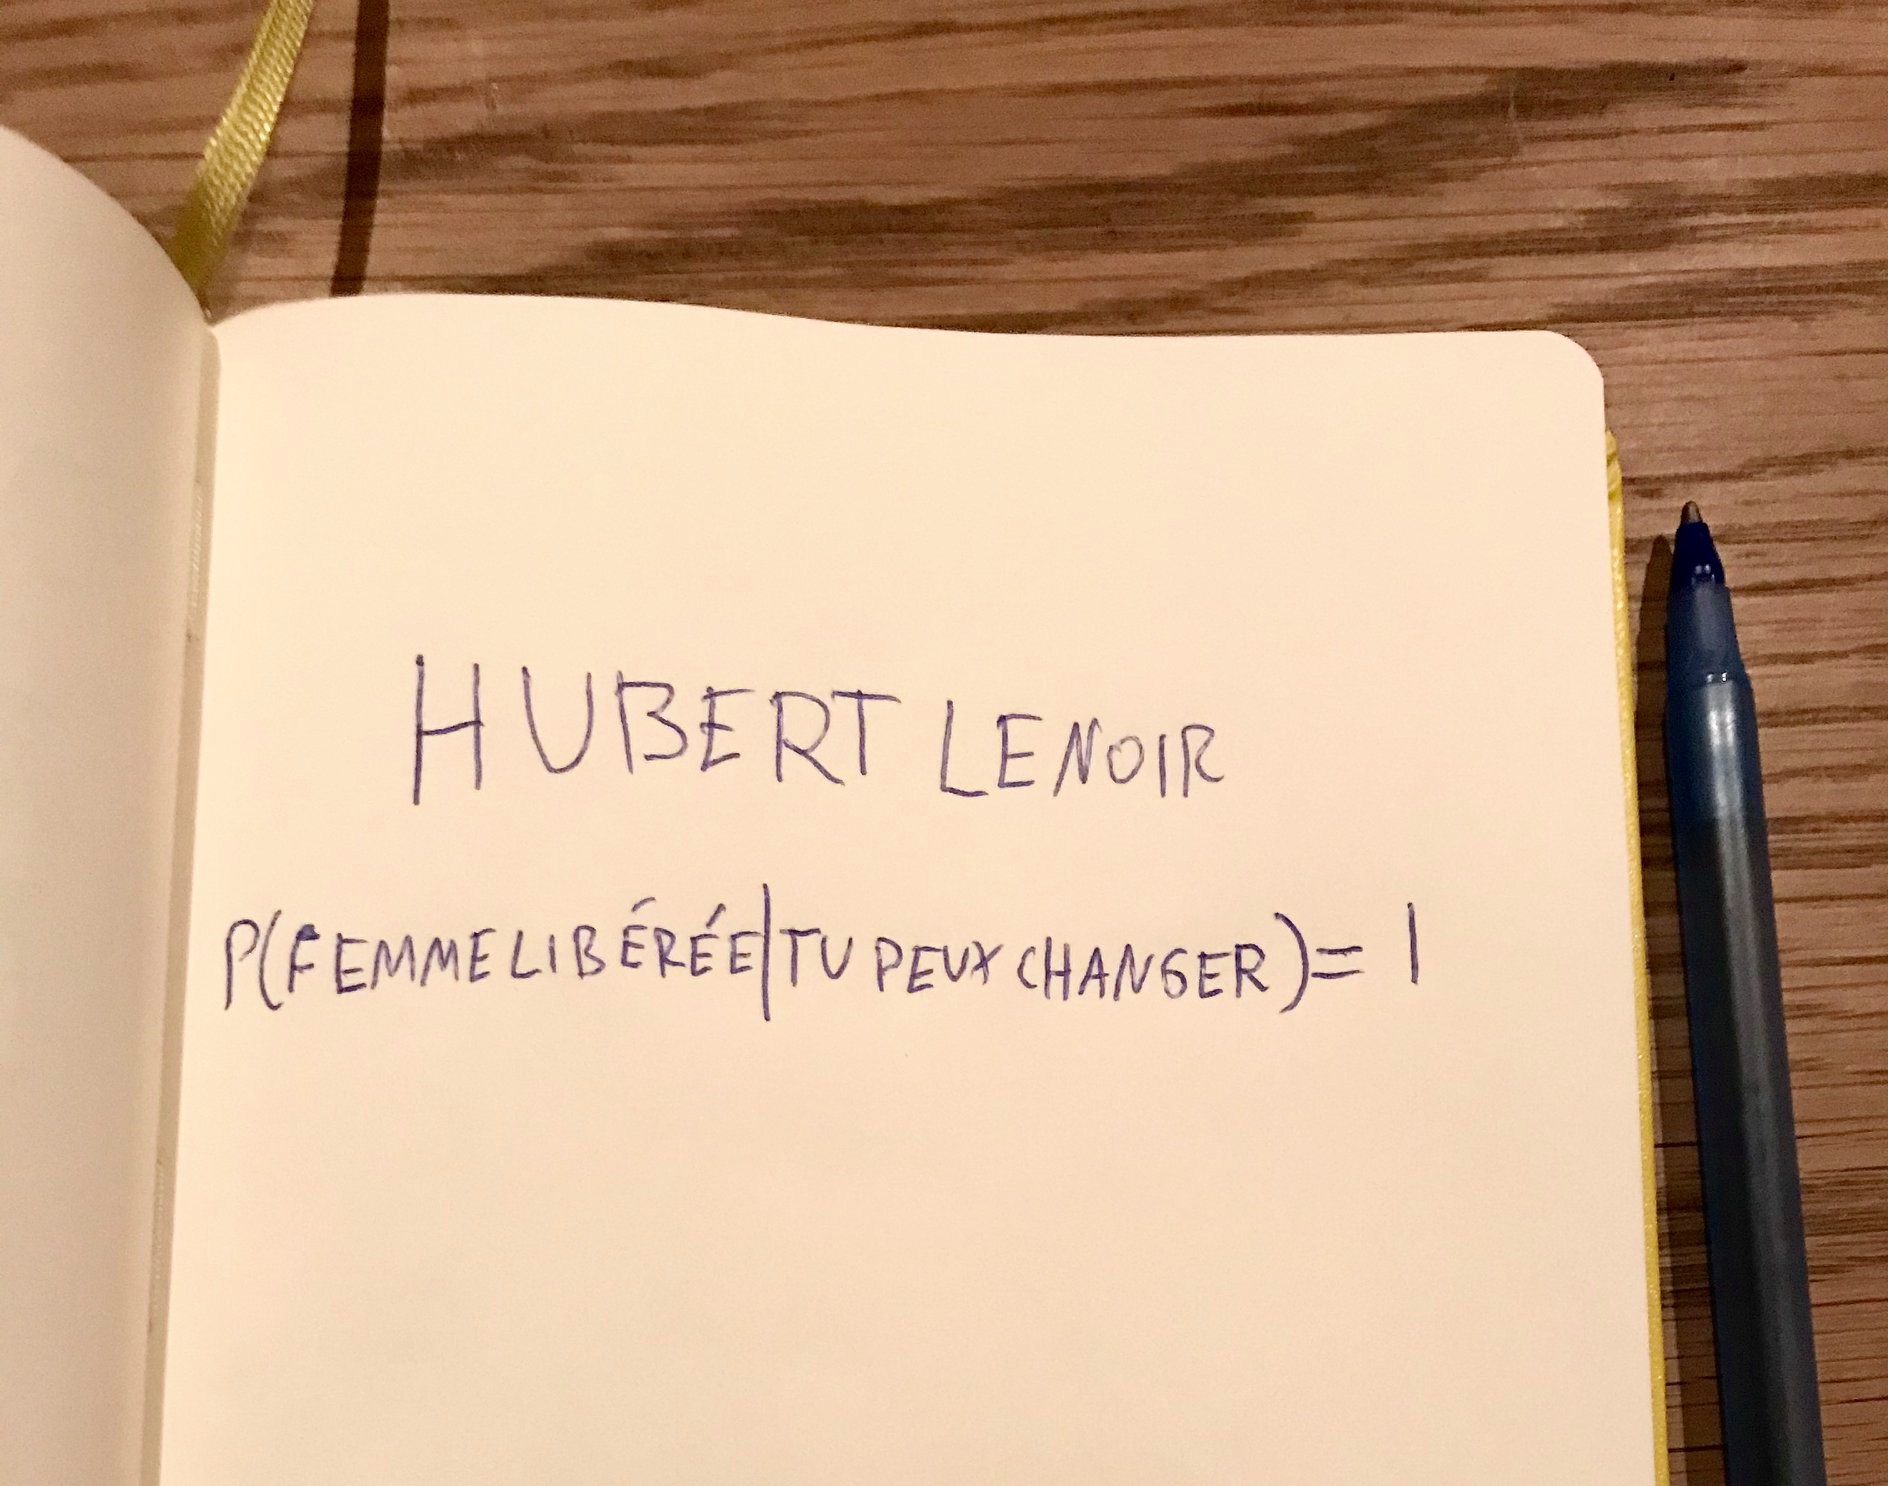 HUBERT LENOIR
P(FEMME LIBÉRÉE|TU PEUX CHANGER)= 1